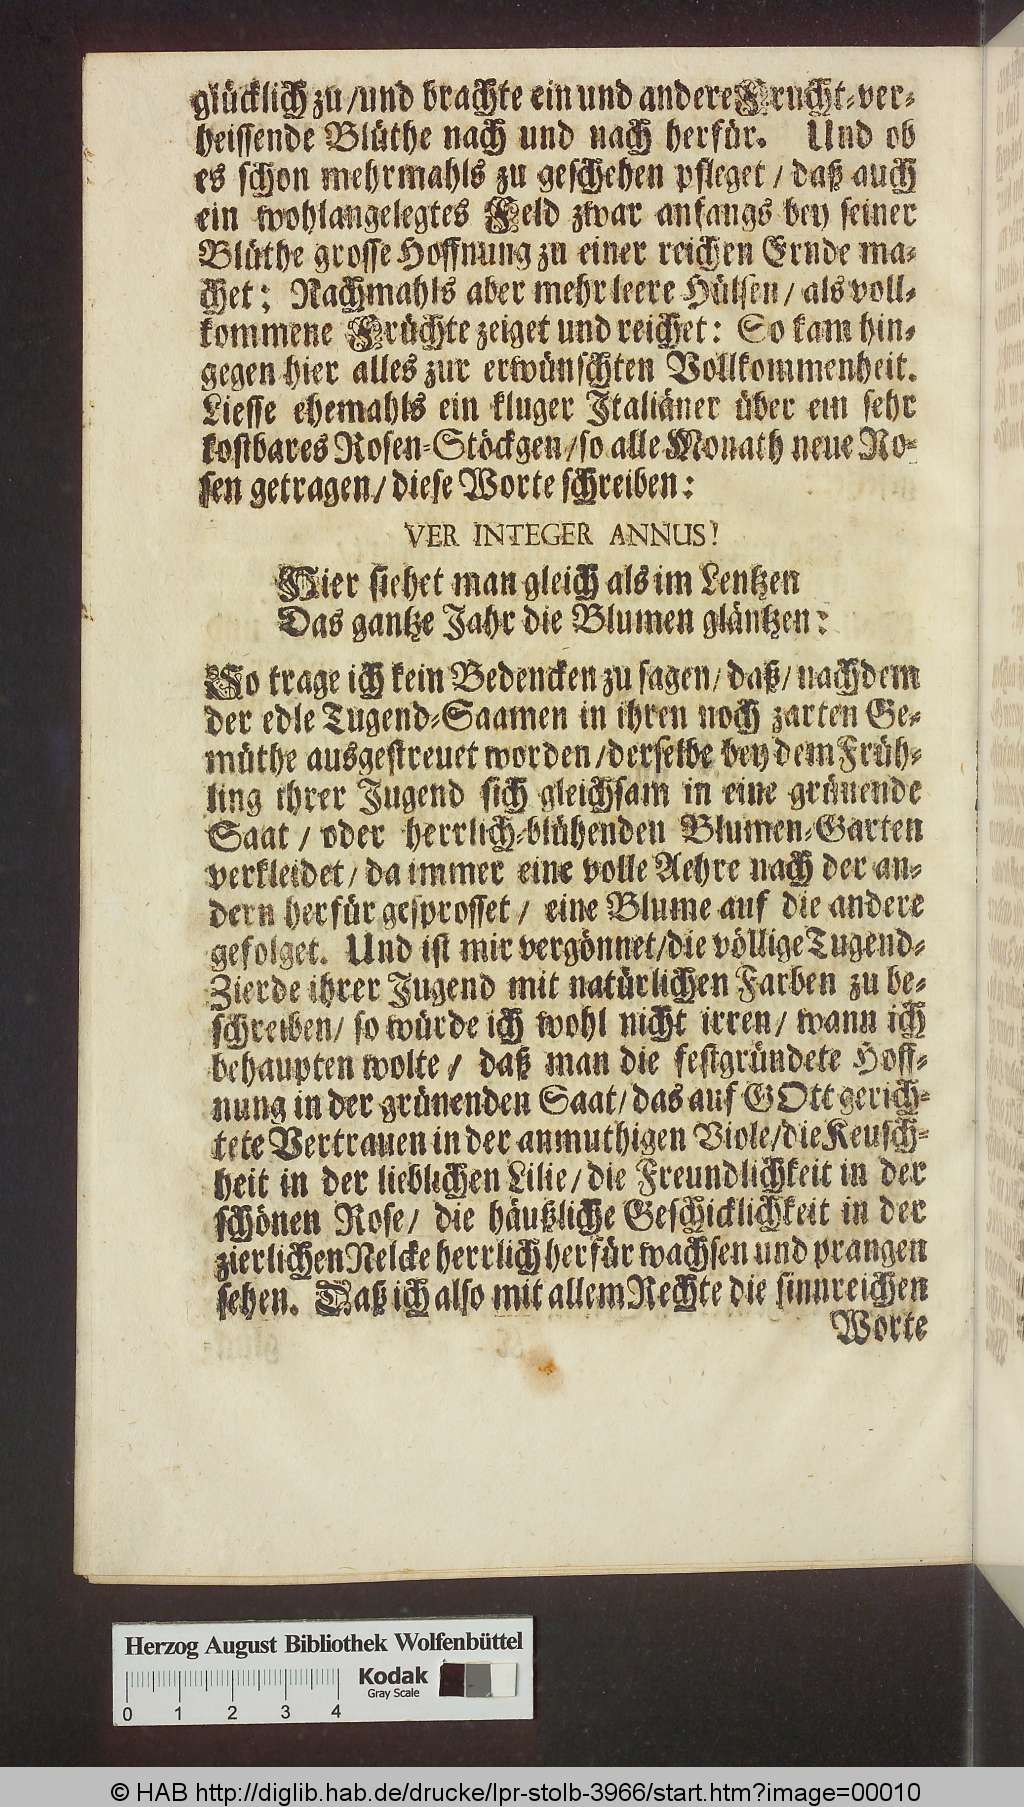 glücklich zu / und brachte ein und andere Frucht-ver-
heissende Blüthe nach und nach herfür. Und ob
es schon mehrmahls zu geschehen pfleget / daß auch
ein wohlangelegtes Feld zwar anfangs bey seiner
Blüthe grosse Hoffnung zu einer reichen Ernde ma-
chet; Nachmahls aber mehr leere Hülsen / als voll-
kommene Früchte zeiget und reichet: So kam hin-
gegen hier alles zur erwünschten Vollkommenheit.
Liesse ehemahls ein kluger Italiäner über ein sehr
kostbares Rosen-Stöckgen / so alle Monath neue Ro-
sen getragen / diese Worte schreiben:
VER INTEGER ANNUS!
Hier siehet man gleich als im Lentzen
Das gantze Jahr die Blumen gläntzen:
So trage ich kein Bedencken zu sagen / daß / nachdem
der edle Tugend-Saamen in ihren noch zarten Ge-
müthe ausgestreuet worden / derselbe bey dem Früh-
ling ihrer Jugend sich gleichsam in eine grünende
Saat / oder herrlich-blühenden Blumen-Garten
verkleidet / da immer eine volle Aehre nach der an-
dern herfür gesprosset / eine Blume auf die andere
gefolget. Und ist mir vergönnet / die völlige Tugend-
Zierde ihrer Jugend mit natürlichen Farben zu be-
schreiben / so würde ich wohl nicht irren / wann ich
behaupten wolte / daß man die festgründete Hoff-
nung in der grünenden Saat / das auf GOtt gerich-
tete Vertrauen in der anmuthigen Viole / die Keusch-
heit in der lieblichen Lilie / die Freundlichkeit in der
schönen Rose / die häußliche Geschicklichkeit in der
zierlichen Nelcke herrlich herfür wachsen und prangen
sehen. Daß ich also mit allem Rechte die sinnreichen
Worte
Herzog August Bibliothek Wolfenbüttel
Kodak
Gray Scale
0 1 2 3 4
© HAB http://diglib.hab.de/drucke/lpr-stolb-3966/start.htm?image=00010